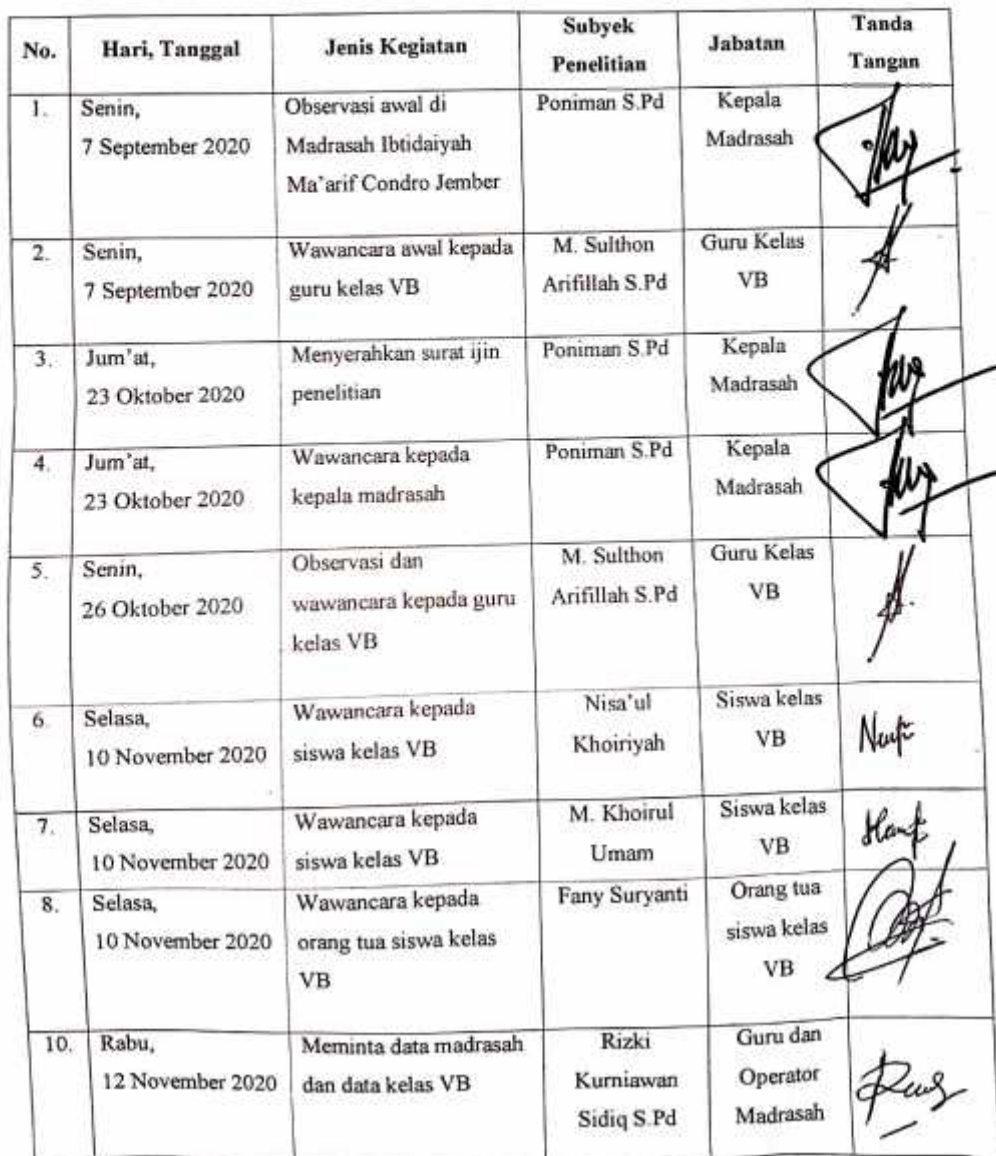 No. Hari, Tanggal Jenis Kegiatan Subyek Penelitian Jabatan Tanda Tangan
1. Senin, 7 September 2020 Observasi awal di Madrasah Ibtidaiyah Ma'arif Condro Jember Poniman S.Pd Kepala Madrasah
2. Senin, 7 September 2020 Wawancara awal kepada guru kelas VB M. Sulthon Arifillah S.Pd Guru Kelas VB
3. Jum'at, 23 Oktober 2020 Menyerahkan surat ijin penelitian Poniman S.Pd Kepala Madrasah
4. Jum'at, 23 Oktober 2020 Wawancara kepada kepala madrasah Poniman S.Pd Kepala Madrasah
5. Senin, 26 Oktober 2020 Observasi dan wawancara kepada guru kelas VB M. Sulthon Arifillah S.Pd Guru Kelas VB
6. Selasa, 10 November 2020 Wawancara kepada siswa kelas VB Nisa'ul Khoiriyah Siswa kelas VB
7. Selasa, 10 November 2020 Wawancara kepada siswa kelas VB M. Khoirul Umam Siswa kelas VB
8. Selasa, 10 November 2020 Wawancara kepada orang tua siswa kelas VB Fany Suryanti Orang tua siswa kelas VB
10. Rabu, 12 November 2020 Meminta data madrasah dan data kelas VB Rizki Kurniawan Sidiq S.Pd Guru dan Operator Madrasah